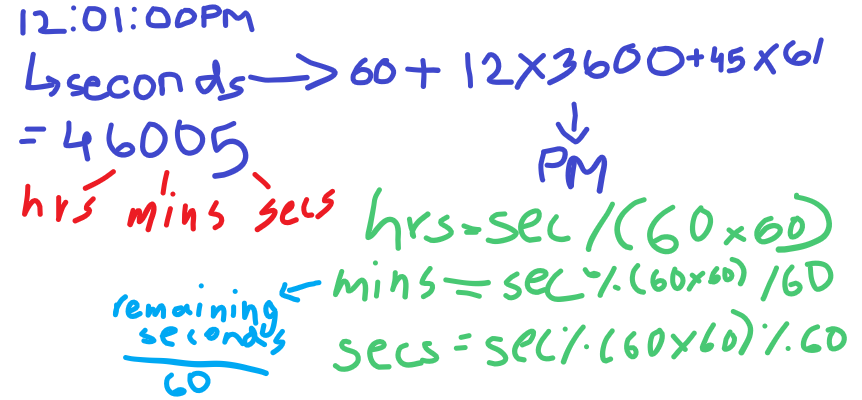 12:01:00PM
↳seconds → 60 + 12×3600+45×61
= 46005
PM
hrs mins secs
hrs=sec/(60×60)
mins=sec%(60×60)/60
remaining
seconds
60
secs=sec%(60×60)%60